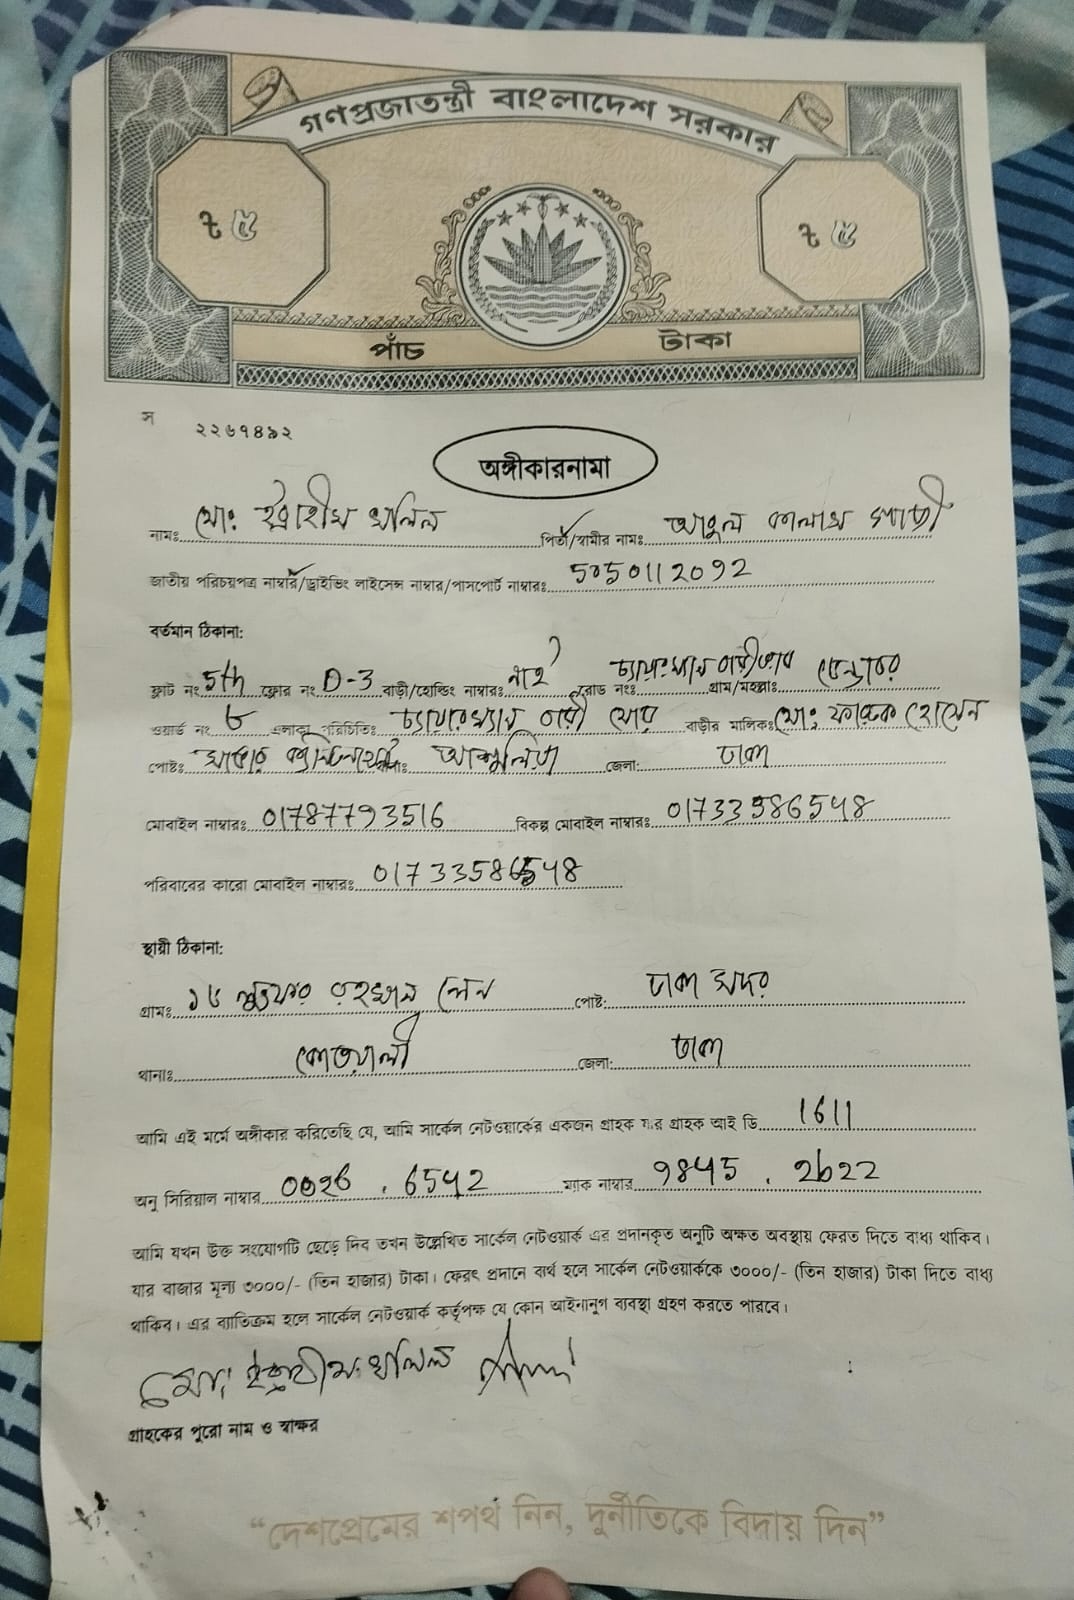 গণপ্রজাতন্ত্রী বাংলাদেশ সরকার
৳ ৫ ৳ ৫
পাঁচ টাকা
স ২২৬৭৪৯২
অঙ্গীকারনামা
নামঃ মোঃ ইব্রাহীম খলিল পিতা/স্বামীর নামঃ আবুল কালাম
জাতীয় পরিচয়পত্র নাম্বার/ড্রাইভিং লাইসেন্স নাম্বার/পাসপোর্ট নাম্বারঃ 5050112092
বর্তমান ঠিকানা:
ফ্লাট নং 5th ফ্লোর নং D-3 বাড়ী/হোল্ডিং নাম্বারঃ নাই রোড নংঃ গ্রাম/মহল্লাঃ
ওয়ার্ড নং ৮ এলাকা পরিচিতিঃ বাড়ীর মালিকঃ মোঃ ফারুক হোসেন
পোষ্টঃ থানাঃ আশুলিয়া জেলা: ঢাকা
মোবাইল নাম্বারঃ 01787793516 বিকল্প মোবাইল নাম্বারঃ 01733586548
পরিবাবের কারো মোবাইল নাম্বারঃ 01733586548
স্থায়ী ঠিকানা:
গ্রামঃ ১৬ লুৎফর রহমান লেন পোষ্ট: ঢাকা সদর
থানাঃ কোতয়ালী জেলা: ঢাকা
আমি এই মর্মে অঙ্গীকার করিতেছি যে, আমি সার্কেল নেটওয়ার্কের একজন গ্রাহক যার গ্রাহক আই ডি 1611
অনু সিরিয়াল নাম্বার 0026 . 6542 ম্যাক নাম্বার 9845 . 2b22
আমি যখন উক্ত সংযোগটি ছেড়ে দিব তখন উল্লেখিত সার্কেল নেটওয়ার্ক এর প্রদানকৃত অনুটি অক্ষত অবস্থায় ফেরত দিতে বাধ্য থাকিব।
যার বাজার মূল্য ৩০০০/- (তিন হাজার) টাকা। ফেরৎ প্রদানে ব্যর্থ হলে সার্কেল নেটওয়ার্ককে ৩০০০/- (তিন হাজার) টাকা দিতে বাধ্য
থাকিব। এর ব্যাতিক্রম হলে সার্কেল নেটওয়ার্ক কর্তৃপক্ষ যে কোন আইনানুগ ব্যবস্থা গ্রহণ করতে পারবে।
মোঃ ইব্রাহীম খলিল
গ্রাহকের পুরো নাম ও স্বাক্ষর
“দেশপ্রেমের শপথ নিন, দুর্নীতিকে বিদায় দিন”